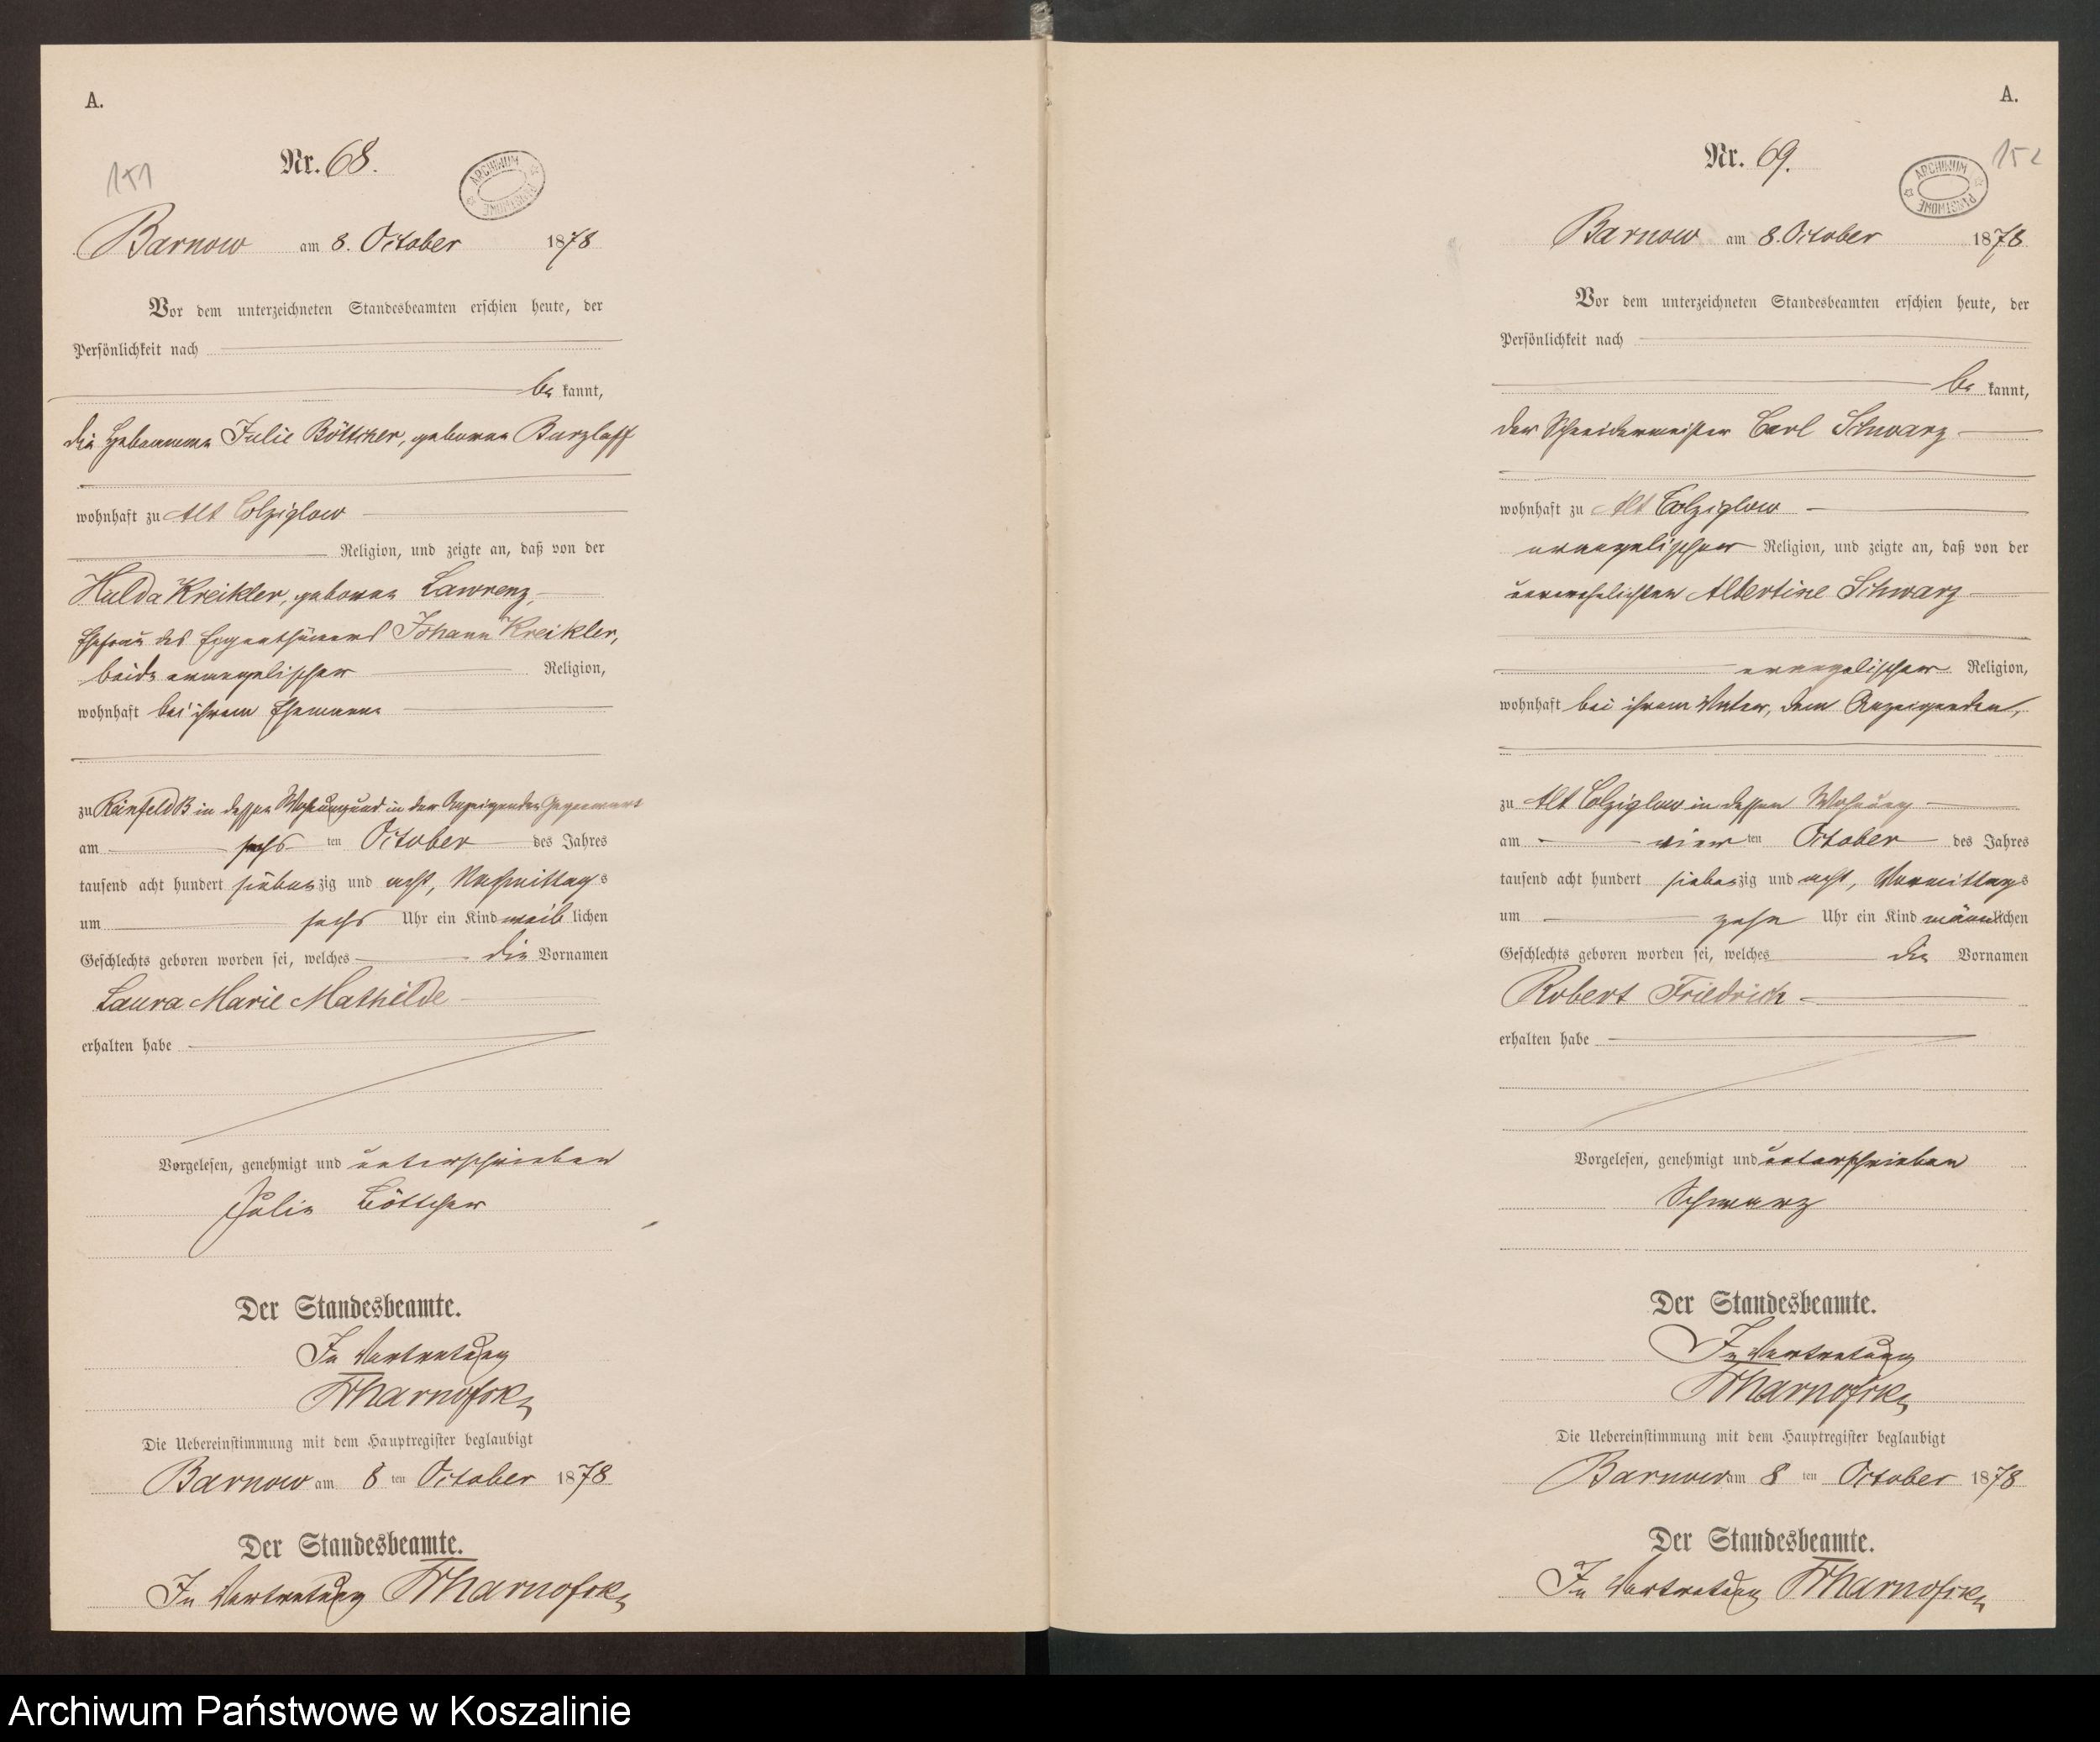 A.
151
Nr. 68.
ARCHIWUM PAŃSTWOWE
Barnow am 8. October 1878
Vor dem unterzeichneten Standesbeamten erschien heute, der
Persönlichkeit nach
be kannt,
die Hebamme Julie Böttcher, geborene Burzlaff
wohnhaft zu Alt Colziglow
Religion, und zeigte an, daß von der
Hulda Kreikler, geborne Lawrenz,
Ehefrau des Eigenthümers Johann Kreikler,
beide evangelischer Religion,
wohnhaft bei ihrem Ehemanne
zu Reinfeld B in dessen Wohnung und in der Anzeigenden Gegenwart
am sechs ten October des Jahres
tausend acht hundert siebenzig und acht, Nachmittags
um sechs Uhr ein Kind weib lichen
Geschlechts geboren worden sei, welches die Vornamen
Laura Marie Mathilde
erhalten habe
Vorgelesen, genehmigt und unterschrieben
Julie Böttcher
Der Standesbeamte.
In Vertretung
Die Uebereinstimmung mit dem Hauptregister beglaubigt
Barnow am 8 ten October 1878
Der Standesbeamte.
In Vertretung
A.
152
Nr. 69.
ARCHIWUM PAŃSTWOWE
Barnow am 8. October 1878
Vor dem unterzeichneten Standesbeamten erschien heute, der
Persönlichkeit nach
be kannt,
der Schneidermeister Carl Schwarz
wohnhaft zu Alt Colziglow
evangelischer Religion, und zeigte an, daß von der
unverehelichten Albertine Schwarz
evangelischer Religion,
wohnhaft bei ihrem Vater, dem Anzeigenden,
zu Alt Colziglow in dessen Wohnung
am vier ten October des Jahres
tausend acht hundert siebenzig und acht, Vormittags
um zehn Uhr ein Kind männlichen
Geschlechts geboren worden sei, welches die Vornamen
Robert Friedrich
erhalten habe
Vorgelesen, genehmigt und unterschrieben
Schwarz
Der Standesbeamte.
In Vertretung
Die Uebereinstimmung mit dem Hauptregister beglaubigt
Barnow am 8 ten October 1878
Der Standesbeamte.
In Vertretung
Archiwum Państwowe w Koszalinie